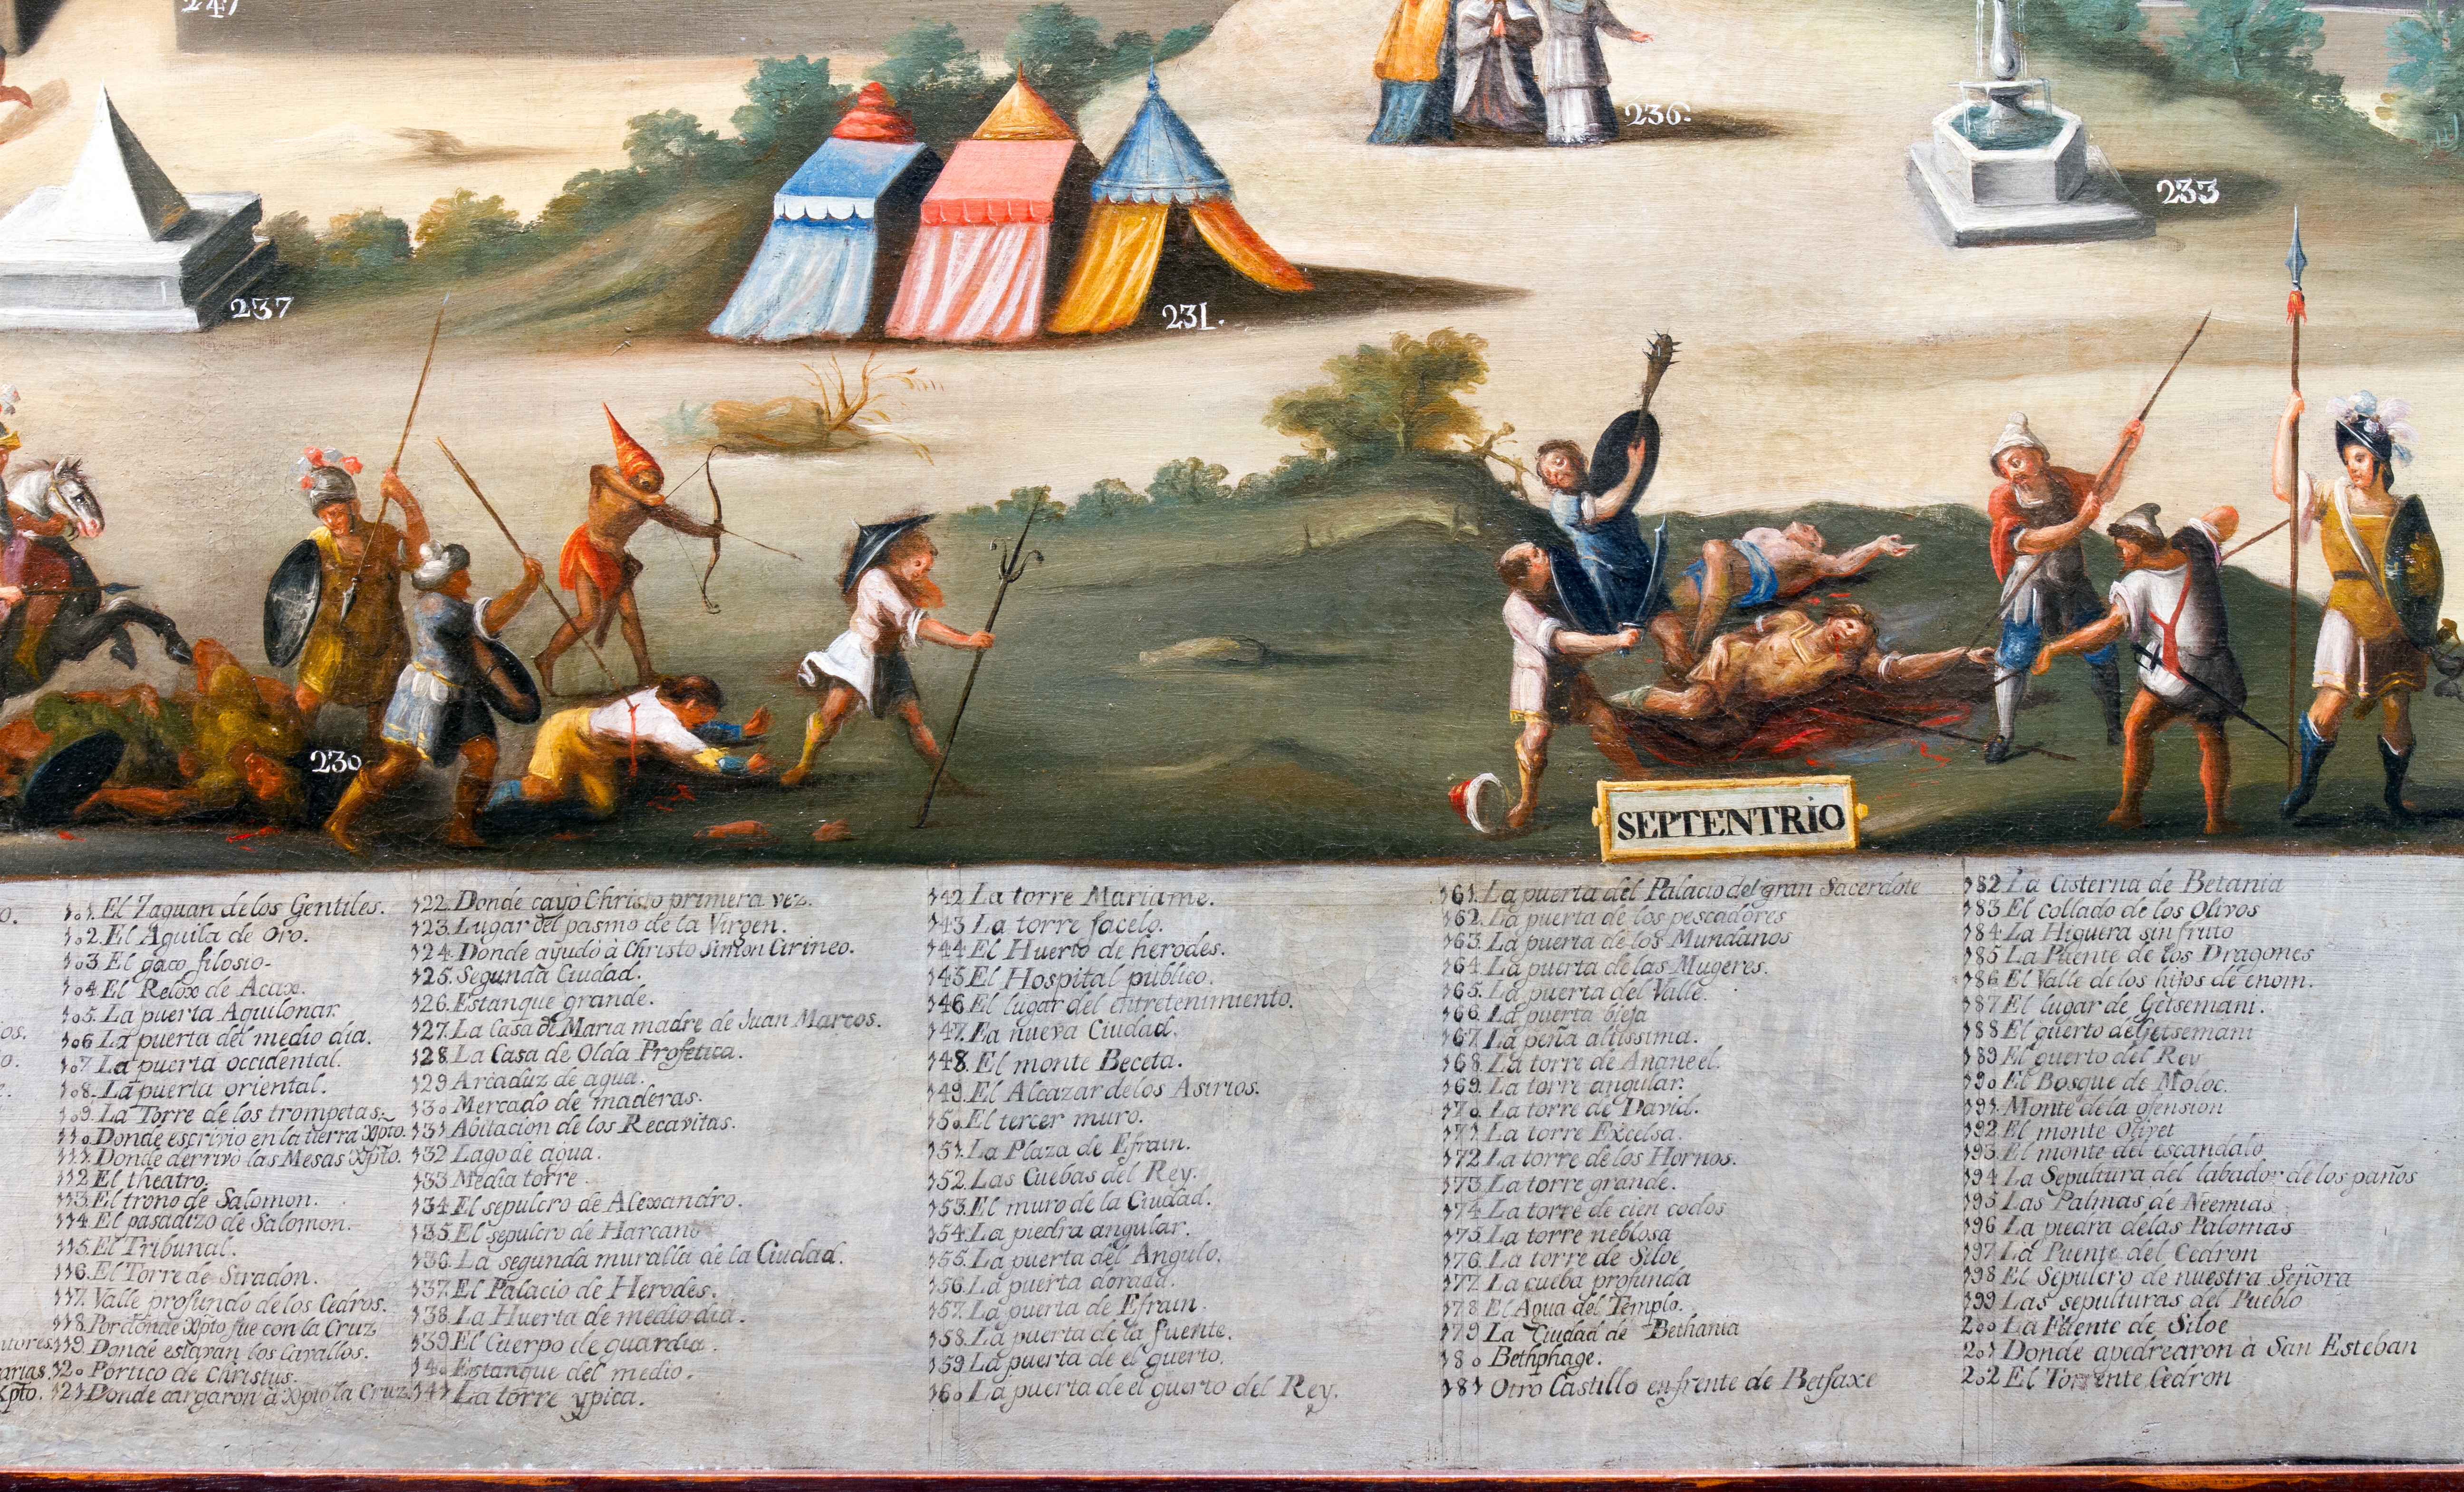 247
236.
233
237
231.
230
SEPTENTRIO
o.
101. El Zaguan de los Gentiles.
102. El Aguila de Oro.
103. El gaco filosio.
104. El Relox de Acax.
105. La puerta Aquilonar.
ios. 106 La puerta del medio dia.
o. 107 La puerta occidental.
e. 108. La puerta oriental.
109. La Torre de los trompetas.
110. Donde escrivio en la tierra Xpto.
111. Donde derrivo las Mesas Xpto.
112 El theatro.
113. El trono de Salomon.
114. El pasadizo de Salomon.
115. El Tribunal.
116. El Torre de Stradon.
117. Valle profundo de los Cedros.
118. Por donde Xpto fue con la Cruz
utores. 119. Donde estavan los Cavallos.
arias. 120 Portico de Christus.
Xpto. 121 Donde cargaron à Xpto la Cruz.
122. Donde cayo Christo primera vez.
123. Lugar del pasmo de la Virgen.
124. Donde ayudó à Christo Simon Cirineo.
125. Segunda Ciudad.
126. Estanque grande.
127. La Casa de Maria madre de Juan Marcos.
128. La Casa de Olda Profetica.
129 Arcaduz de agua.
130 Mercado de maderas.
131 Abitacion de los Recavitas.
132 Lago de agua.
133 Media torre.
134. El sepulcro de Alexandro.
135. El sepulcro de Harcano
136. La segunda muralla de la Ciudad.
137. El Palacio de Herodes.
138. La Huerta de medio dia.
139 El Cuerpo de guardia.
140 Estanque del medio.
141 La torre ypica.
142 La torre Mariame.
143 La torre facelo.
144 El Huerto de herodes.
145 El Hospital publico.
146 El lugar del entretenimiento.
147. La nueva Ciudad.
148. El monte Beceta.
149. El Alcazar de los Asirios.
150. El tercer muro.
151. La Plaza de Efrain.
152. Las Cuebas del Rey.
153. El muro de la Ciudad.
154. La piedra angular.
155. La puerta del Angulo.
156. La puerta dorada.
157. La puerta de Efrain.
158. La puerta de la fuente.
159 La puerta de el guerto.
160. La puerta de el guerto del Rey.
161. La puerta del Palacio del gran Sacerdote
162. La puerta de los pescadores
163. La puerta de los Mundanos
164. La puerta de las Mugeres.
165. La puerta del Valle.
166. La puerta bieja
167. La peña altissima.
168. La torre de Ananeel.
169. La torre angular.
170. La torre de David.
171 La torre Excelsa.
172 La torre de los Hornos.
173. La torre grande.
174. La torre de cien codos
175. La torre neblosa
176. La torre de Siloe
177. La cueba profunda
178 El Agua del Templo.
179 La Ciudad de Bethania
180 Bethphage.
181 Otro Castillo enfrente de Betfaxe
182 La Cisterna de Betania
183 El collado de los Olivos
184 La Higuera sin fruto
185 La Puente de los Dragones
186 El Valle de los hijos de enom.
187 El lugar de Getsemani.
188 El guerto de Getsemani
189 El guerto del Rey
190 El Bosque de Moloc.
191 Monte de la ofension
192 El monte Olivet
193. El monte del escandalo
194 La Sepultura del labador de los paños
195 Las Palmas de Neemias
196 La piedra de las Palomas
197. La Puente del Cedron
198 El Sepulcro de nuestra Señora
199 Las sepulturas del Pueblo
200 La Fuente de Siloe
201 Donde apedrearon à San Esteban
202 El Torrente Cedron